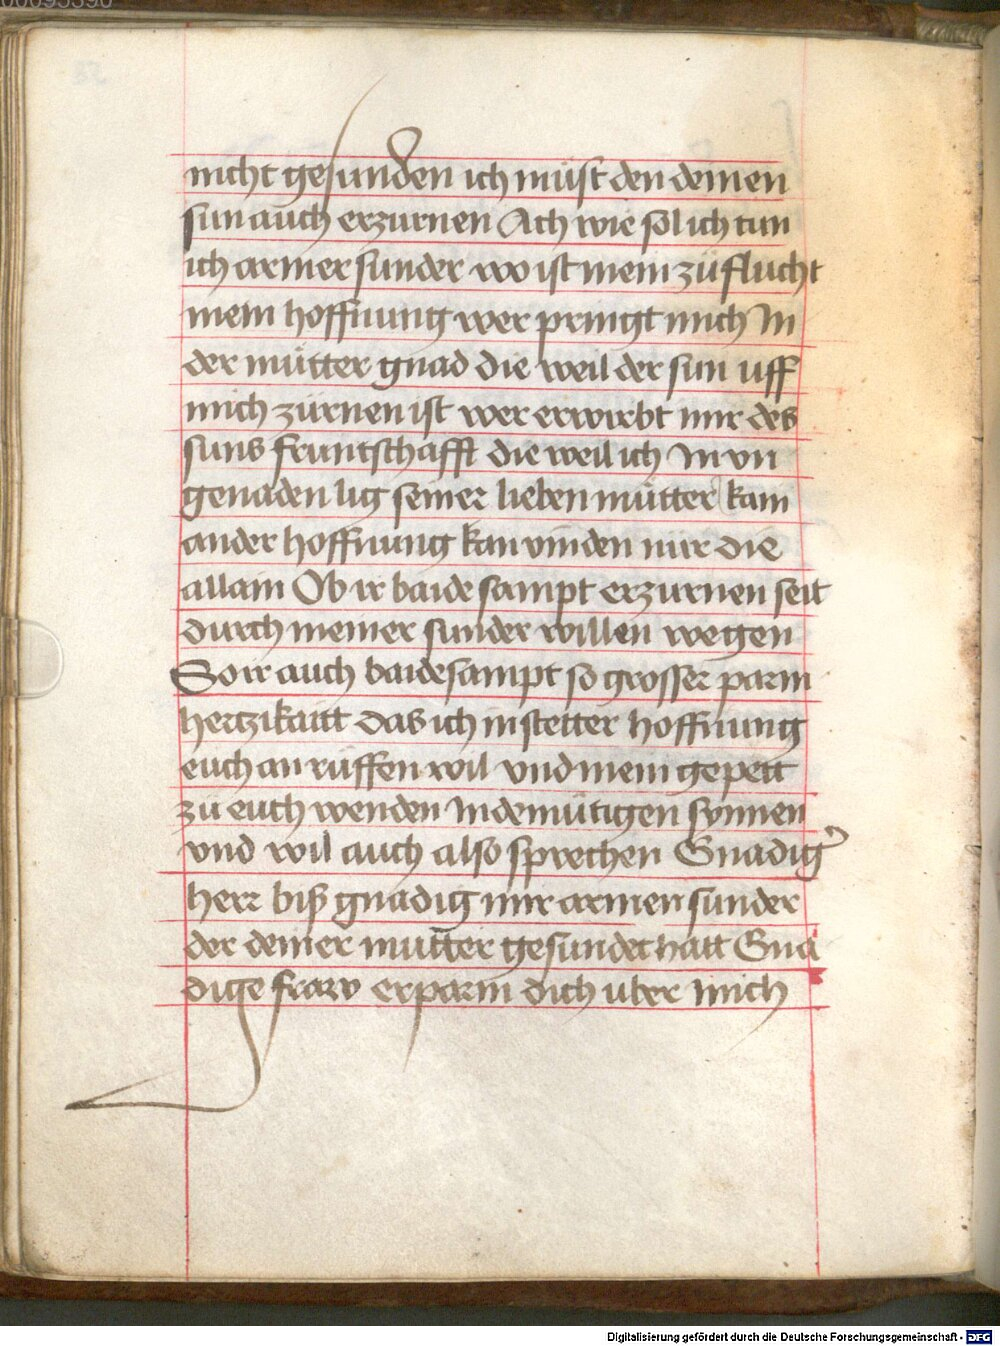 nicht gesunden ich müst den deinen
sun auch erzurnen Ach wie sol ich tun
ich armer sunder wo ist mein züflucht
mein hoffnung wer pringt mich In
der mütter gnad die weil der sun uff
mich zürnen ist wer erwirbt mir des
suns fruntschafft die weil ich In vn
genaden lig seiner lieben mütter kain
ander hoffnung kan vinden mir die
allain Ob ir baide sampt erzurnen seit
durch meiner sunder willen wegen
So ir auch baidesampt so grosser parm
hertzikaitt das ich in stetter hoffnung
euch an rüffen wil vnd mein gepett
zü euch wenden In demütigen synnen
vnd wil auch also sprechen Gnadig
herr biß gnadig mir armen sunder
der deiner mutter gesundet hatt Gna
dige fraw erparm dich uber mich
Digitalisierung gefördert durch die Deutsche Forschungsgemeinschaft - DFG